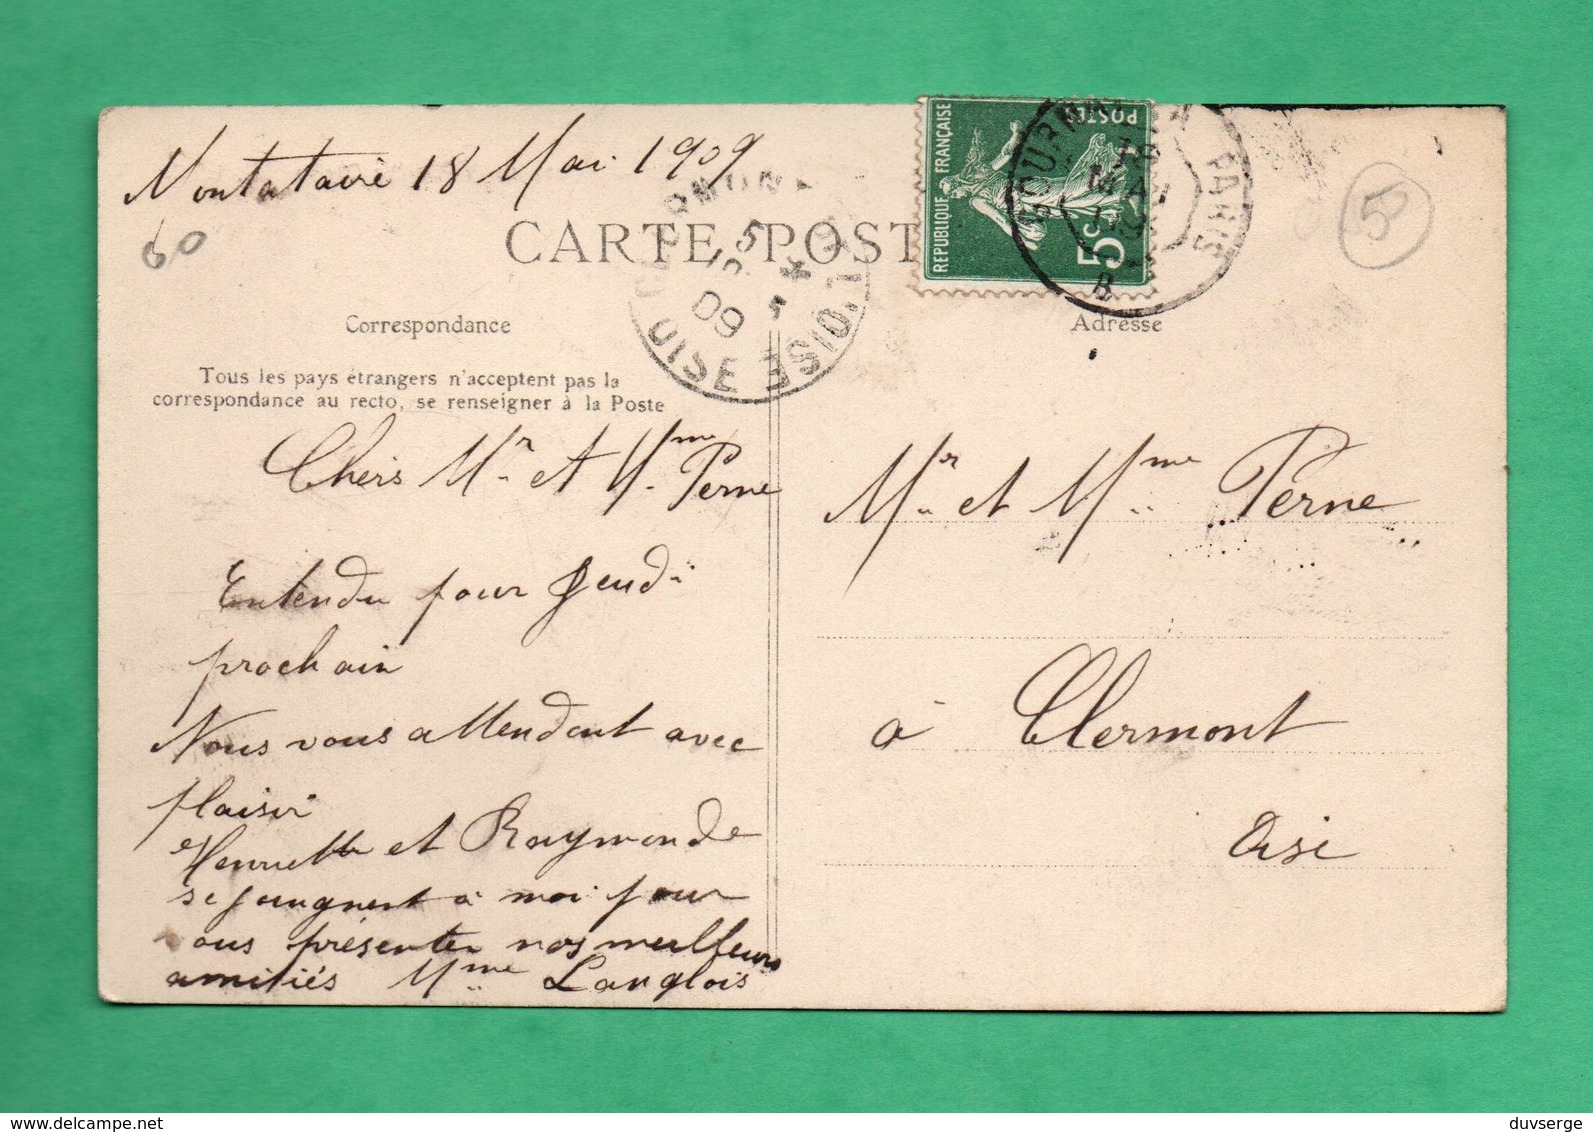 Montataire 18 Mai 1909
60
CARTE POST
5
REPUBLIQUE FRANÇAISE
POSTES
5c
GOURNAY A PARIS
18
MAI
09
B
CLERMONT
OISE
09
Correspondance
Adresse
Tous les pays étrangers n'acceptent pas la
correspondance au recto, se renseigner à la Poste
Chers Mr et Mme Perne
Entendu pour Jeudi
prochain
Nous vous attendont avec
plaisir
Henriette et Raymonde
se joingnent à moi pour
vous présenter nos meilleurs
amitiés Mme Langlois
Mr et Mme Perne
à Clermont
Oise
duvserge